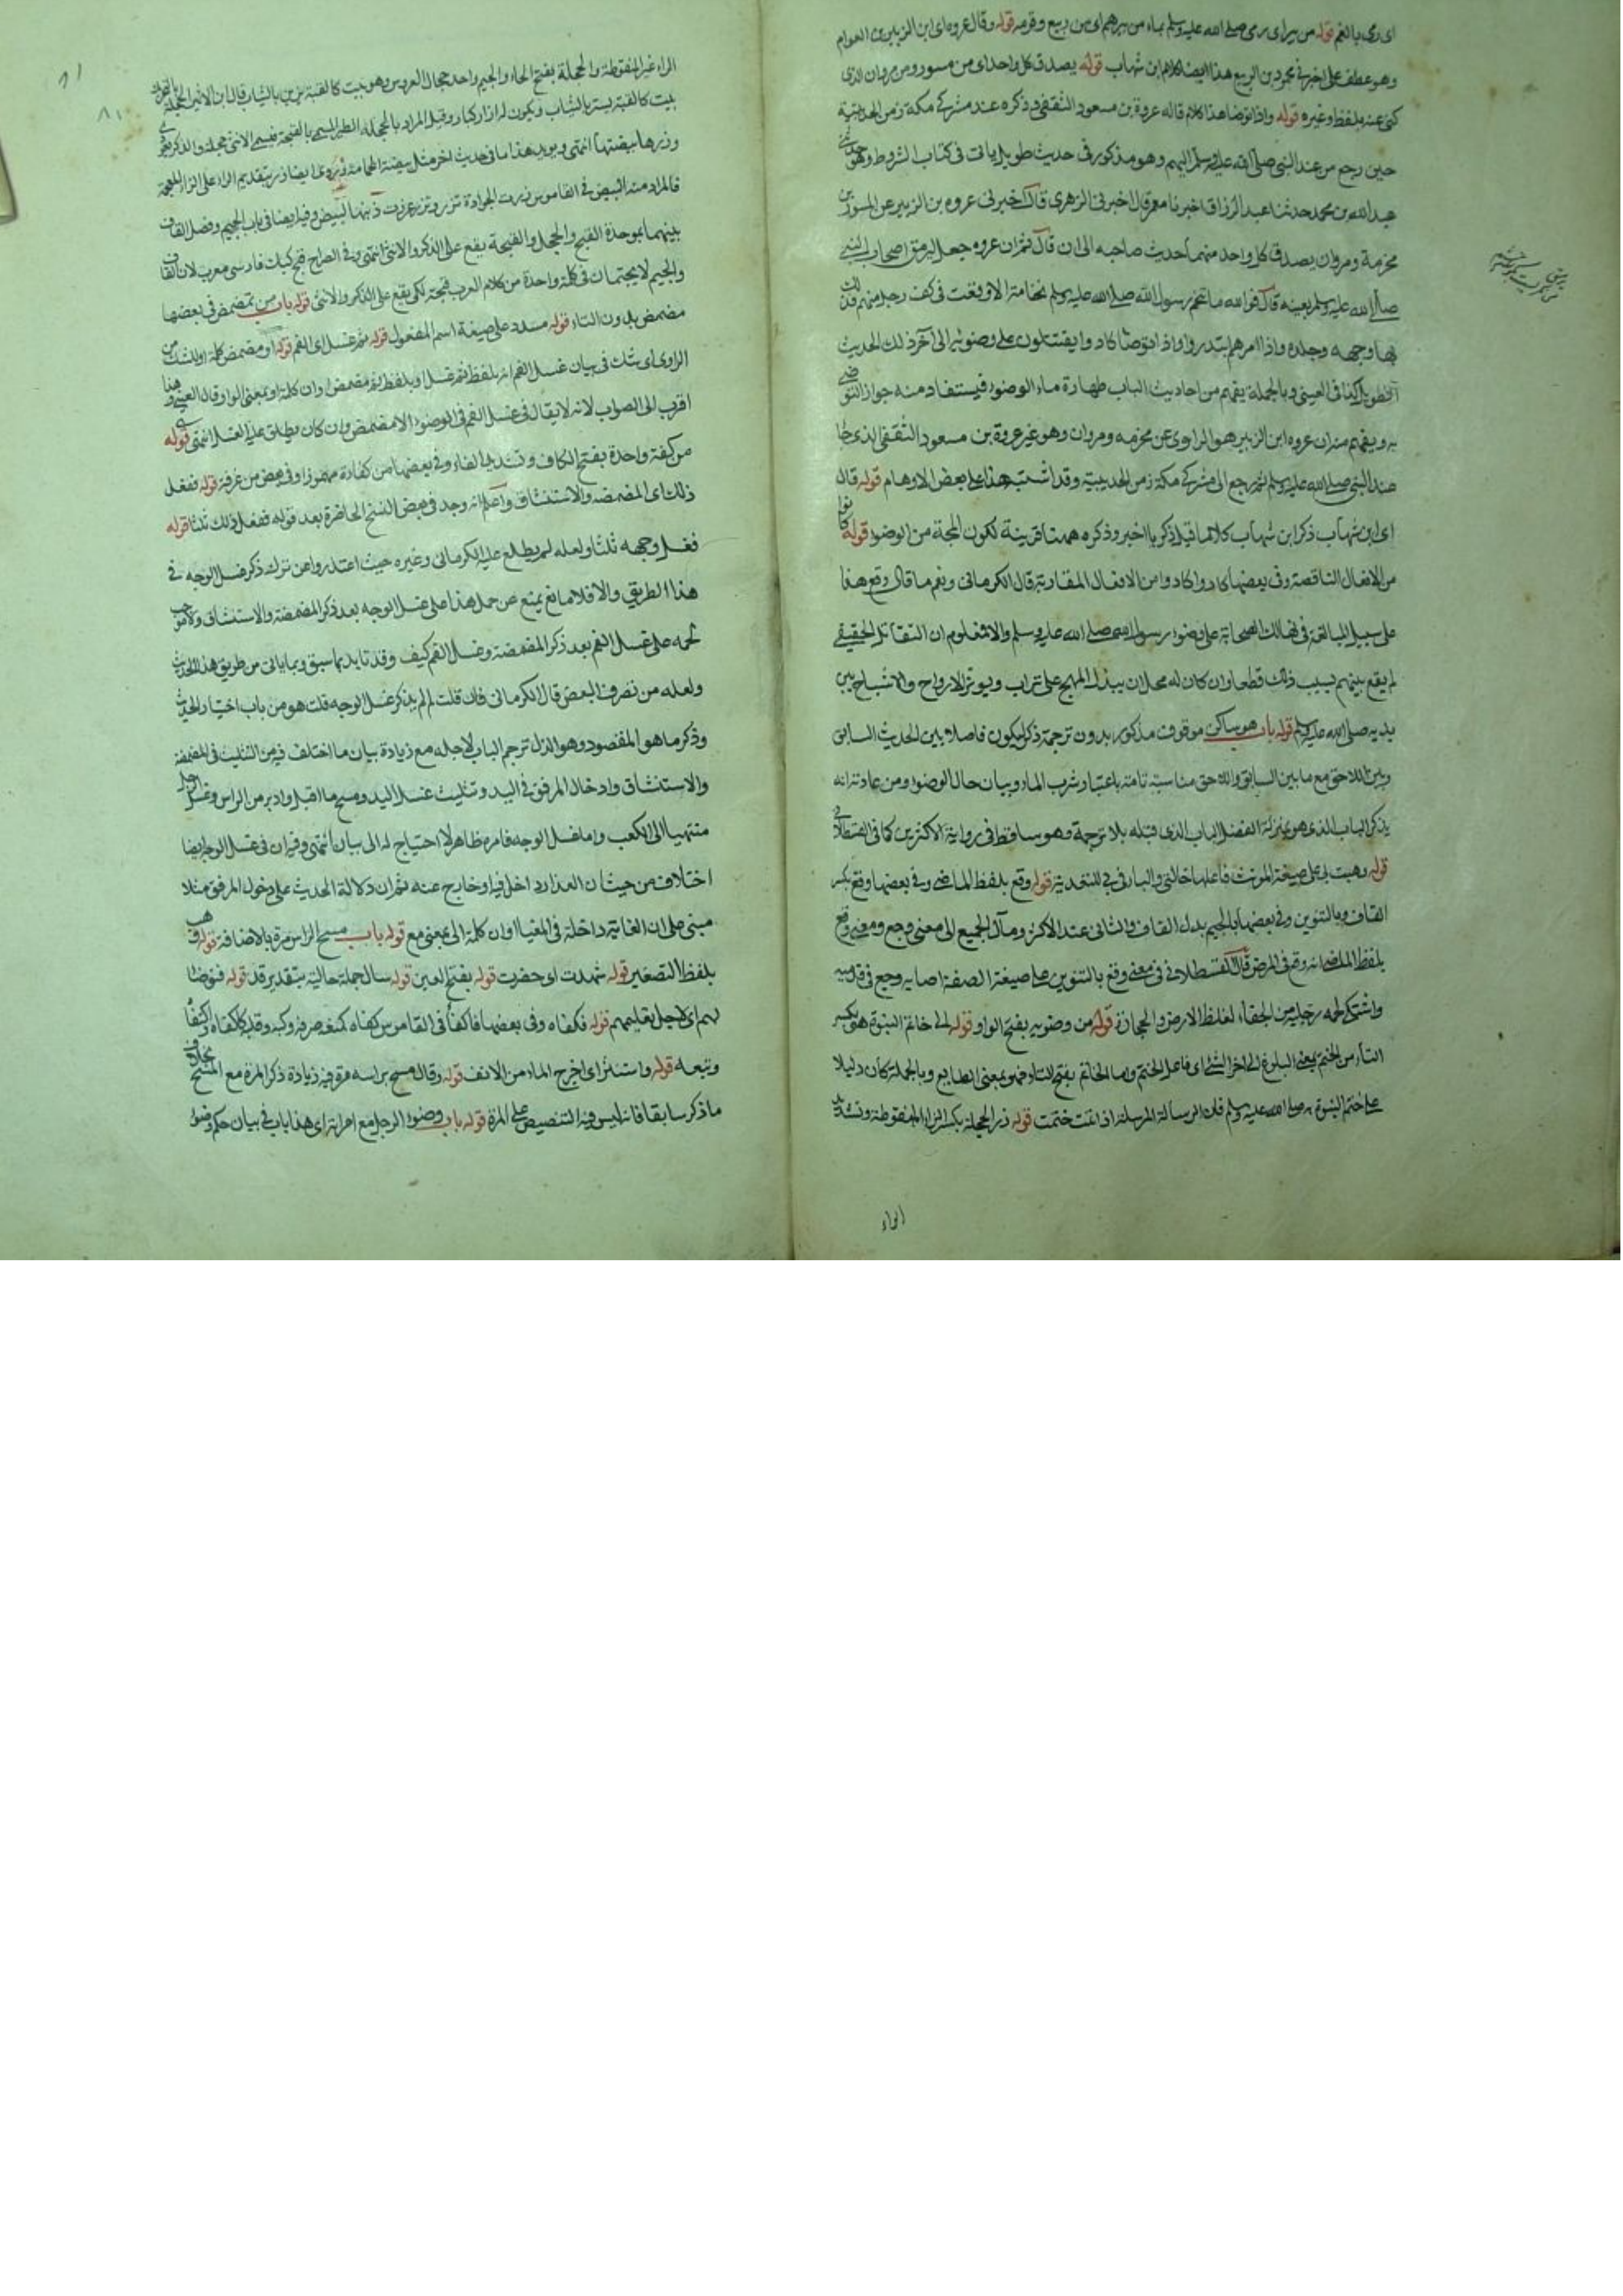 اى رمى بالفم قوله من بير اى رمى صلى الله عليه وسلم بماء من بيرهم اى من ربيع وقومه قوله وقال عروه اى ابن الزبير بن العوام
وهو عطف على اخبرنى محمود بن الربيع هذا ايضا كلام ابن شهاب قوله يصدق كل واحد اى من مسور ومن مروان الذى
كنى عنه بلفظ وغيره قوله واذا توضا هذا كلام قاله عروة بن مسعود الثقفى ذكره عند مشركى مكة زمن الحديبية
حين رجع من عند النبى صلى الله عليه وسلم اليهم وهو مذكور فى حديث طويل ياتى فى كتاب الشروط وهو حدثنى
عبد الله بن محمد حدثنا عبد الرزاق اخبرنا معمر قال اخبرنى الزهرى قال اخبرنى عروه بن الزبير عن المسور بن
مخرمة ومروان يصدق كل واحد منهما حديث صاحبه الى ان قال ثم ان عروه جعل يرمق اصحاب النبى
صلى الله عليه وسلم بعينه قال فوالله ما تنخم رسول الله صلى الله عليه وسلم نخامة الا وقعت فى كف رجل منهم فدلك
بها وجهه وجلده واذا امرهم ابتدروا واذا توضا كادوا يقتتلون على وضوئه الى آخر ذلك الحديث
الطويل كذا فى العينى وبالجملة يفهم من احاديث الباب طهارة ماء الوضوء فيستفاد منه جواز التوضى
به ويفهم منه ان عروه ابن الزبير هو الراوى عن مخرمه ومروان وهو غير عروة بن مسعود الثقفى الذى جا
عند النبى صلى الله عليه وسلم ثم رجع الى مشركى مكة زمن الحديبية وقد اشتبه هذا على بعض الاوهام قوله قال
اى ابن شهاب ذكر ابن شهاب كلاما قبل ذكر با الخبر وذكره ههنا قرينة لكون المجة من الوضوء قوله كانوا
من الافعال الناقصة وفى بعضها كادوا كادوا من الافعال المقاربة قال الكرمانى ونعم ما قال وقع هذا
على سبيل المبالغة فى تهالك الصحابة على وضوء رسول الله صلى الله عليه وسلم والا فمعلوم ان التقاتل الحقيقى
لم يقع بينهم لسبب ذلك قطعا وان كان له محل ان يبذل المهج على تراب ويوثر الارواح والاشباح بين
يديه صلى الله عليه وسلم قوله باب هو ساكن موقوف مذكور بدون ترجمة ذكر ليكون فاصلا بين الحديث السابق
وبين اللاحق مع ما بين السابق واللاحق مناسبة تامة باعتبار شرب الماء وبيان حال الوضوء ومن عادته انه
يذكر الباب الذى هو بمنزلة الفصل للباب الذى قبله بلا ترجمة وهو ساقط فى رواية الاكثرين كما فى القسطلانى
قوله ذهبت بى على صيغة المونث فاعلها خالتى والباء فى بى للتعدية قوله وقع بلفظ الماضى وفى بعضها وقع بكسر
القاف وبالتنوين وفى بعضها بالجيم بدل القاف والثانى عند الاكثر ومآل الجميع الى معنى وجع ومعنى وقع
بلفظ الماضى انه وقع فى المرض قال القسطلانى فى معنى وقع بالتنوين على صيغة الصفة اصابه وجع فى قدميه
واشتكى لحم رجليه من الحفاء لغلظ الارض والحجارة قوله من وضوئه بفتح الواو قوله الى خاتم النبوة هى بكسر
التاء من الختم بمعنى البلوغ الى اخر الشئ اى فاعل الختم واما الخاتم بفتح التاء فهو بمعنى الطابع وبالجملة كان دليلا
على ختم النبوة به صلى الله عليه وسلم فان الرسالة المرسلة اذا تمت ختمت قوله زر الحجلة بكسر الزاء المنقوطة وتشديد
الراء
الراء غير المنقوطة والحجلة بفتح الحاء والجيم واحد حجال العروس وهو بيت كالقبة يزين بالثياب قال ابن الاثير الحجلة بالتحريك
بيت كالقبة يستر بالثياب ويكون له ازرار كبار وقيل المراد بالحجلة الطير المسمى بالقبجة فيسمى الانثى حجلة والذكر
وزرها بيضتها انتهى ويويد هذا ما فى حديث اخر مثل بيضة الحمامة ويروى ايضا رز بتقديم الراء على الزاء المعجمة
فالمراد منه البيض فى القاموس رزت الجرادة ترز وترز غرزت ذنبها لتبيض وفيه ايضا فى باب الجيم وفصل القاف
بينهما بموحدة القبج والحجل والقبجة يقع على الذكر والانثى انتهى وفى الصراح قبج كبك فارسى معرب لان القاف
والجيم لا يجتمعان فى كلمة واحدة من كلام العرب قبجة لكى يقع على الذكر والانثى قوله باب من تمضمض فى بعضها
مضمض بدون التاء قوله مسدد على صيغة اسم المفعول قوله ثم غسل اى الفم قوله او مضمض كلمة او للشك من
الراوى اى شك فى بيان غسل الفم انه بلفظ ثم غسل او بلفظ ثم مضمض او ان كلمة او بمعنى الواو قال العينى وهذا
اقرب الى الصواب لانه لا يقال فى غسل الفم فى الوضوء الا مضمض وان كان يطلق عليه الغسل انتهى قوله
من كفة واحدة بفتح الكاف وتشديد الفاء وفى بعضها من كفاءة مهموزا وفى بعض من غرفة قوله ففعل
ذلك اى المضمضه والاستنشاق واعلم انه وجد فى بعض النسخ الحاضرة بعد قوله ففعل ذلك ثلثا قوله
فغسل وجهه ثلثا ولعله لم يطلع عليه الكرمانى وغيره حيث اعتذروا عن ترك ذكر غسل الوجه فى
هذا الطريق والا فلا مانع يمنع عن حمل هذا على غسل الوجه بعد ذكر المضمضة والاستنشاق ولا موجب
لحمله على غسل الفم بعد ذكر المضمضة وغسل الفم كيف وقد تايد بما سبق وبما ياتى من طريق هذا الحديث
ولعله من تصرف البعض قال الكرمانى فان قلت لم لم يذكر غسل الوجه قلت هو من باب اختصار الحديث
وذكر ما هو المقصود وهو الذى ترجم الباب لاجله مع زيادة بيان ما اختلف فيه من التثليث فى المضمضة
والاستنشاق وادخال المرفق فى اليد وتثليث غسل اليد ومسح ما اقبل وادبر من الراس وغسل الرجل
منتهيا الى الكعب واما غسل الوجه فامره ظاهر لا احتياج له الى بيان انتهى وفيه ان فى غسل الوجه ايضا
اختلاف من حيث ان العذار داخل فيه او خارج عنه ثم ان دلالة الحديث على دخول المرفق مثلا
مبنى على ان الغاية داخلة فى المغيا او ان كلمة الى بمعنى مع قوله باب مسح الراس مرة بالاضافة قوله وهيب
بلفظ التصغير قوله شهدت اى حضرت قوله بفتح العين قوله سال جملة حالية بتقدير قد قوله فتوضا
لهم اى لاجل تعليمهم قوله فكفاه وفى بعضها فاكفأ فى القاموس كفاه كمنعه صرفه وكبه وقلبه كاكفاه واكتفأ
وتبعه قوله واستنثر اى اخرج الماء من الانف قوله وقال مسح براسه مرة فيه زيادة ذكر المرة مع المسح بخلاف
ما ذكر سابقا فانه ليس فيه التنصيص على المرة قوله باب وضوء الرجل مع امراته اى هذا باب فى بيان حكم وضوء